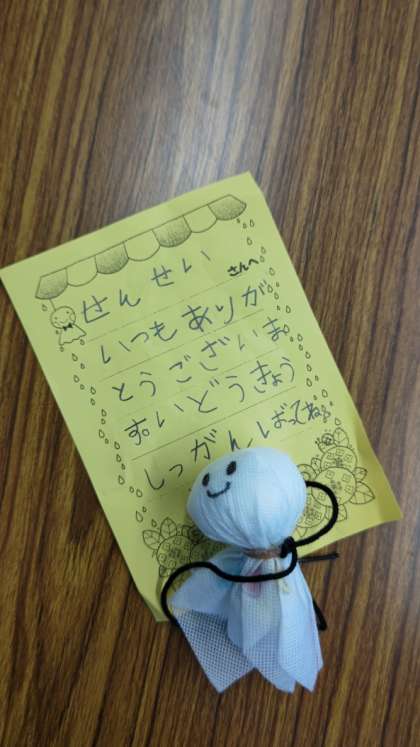 せんせい さんへ
いつもありが
とうございま
す。いどうきょう
しつがんばってね。